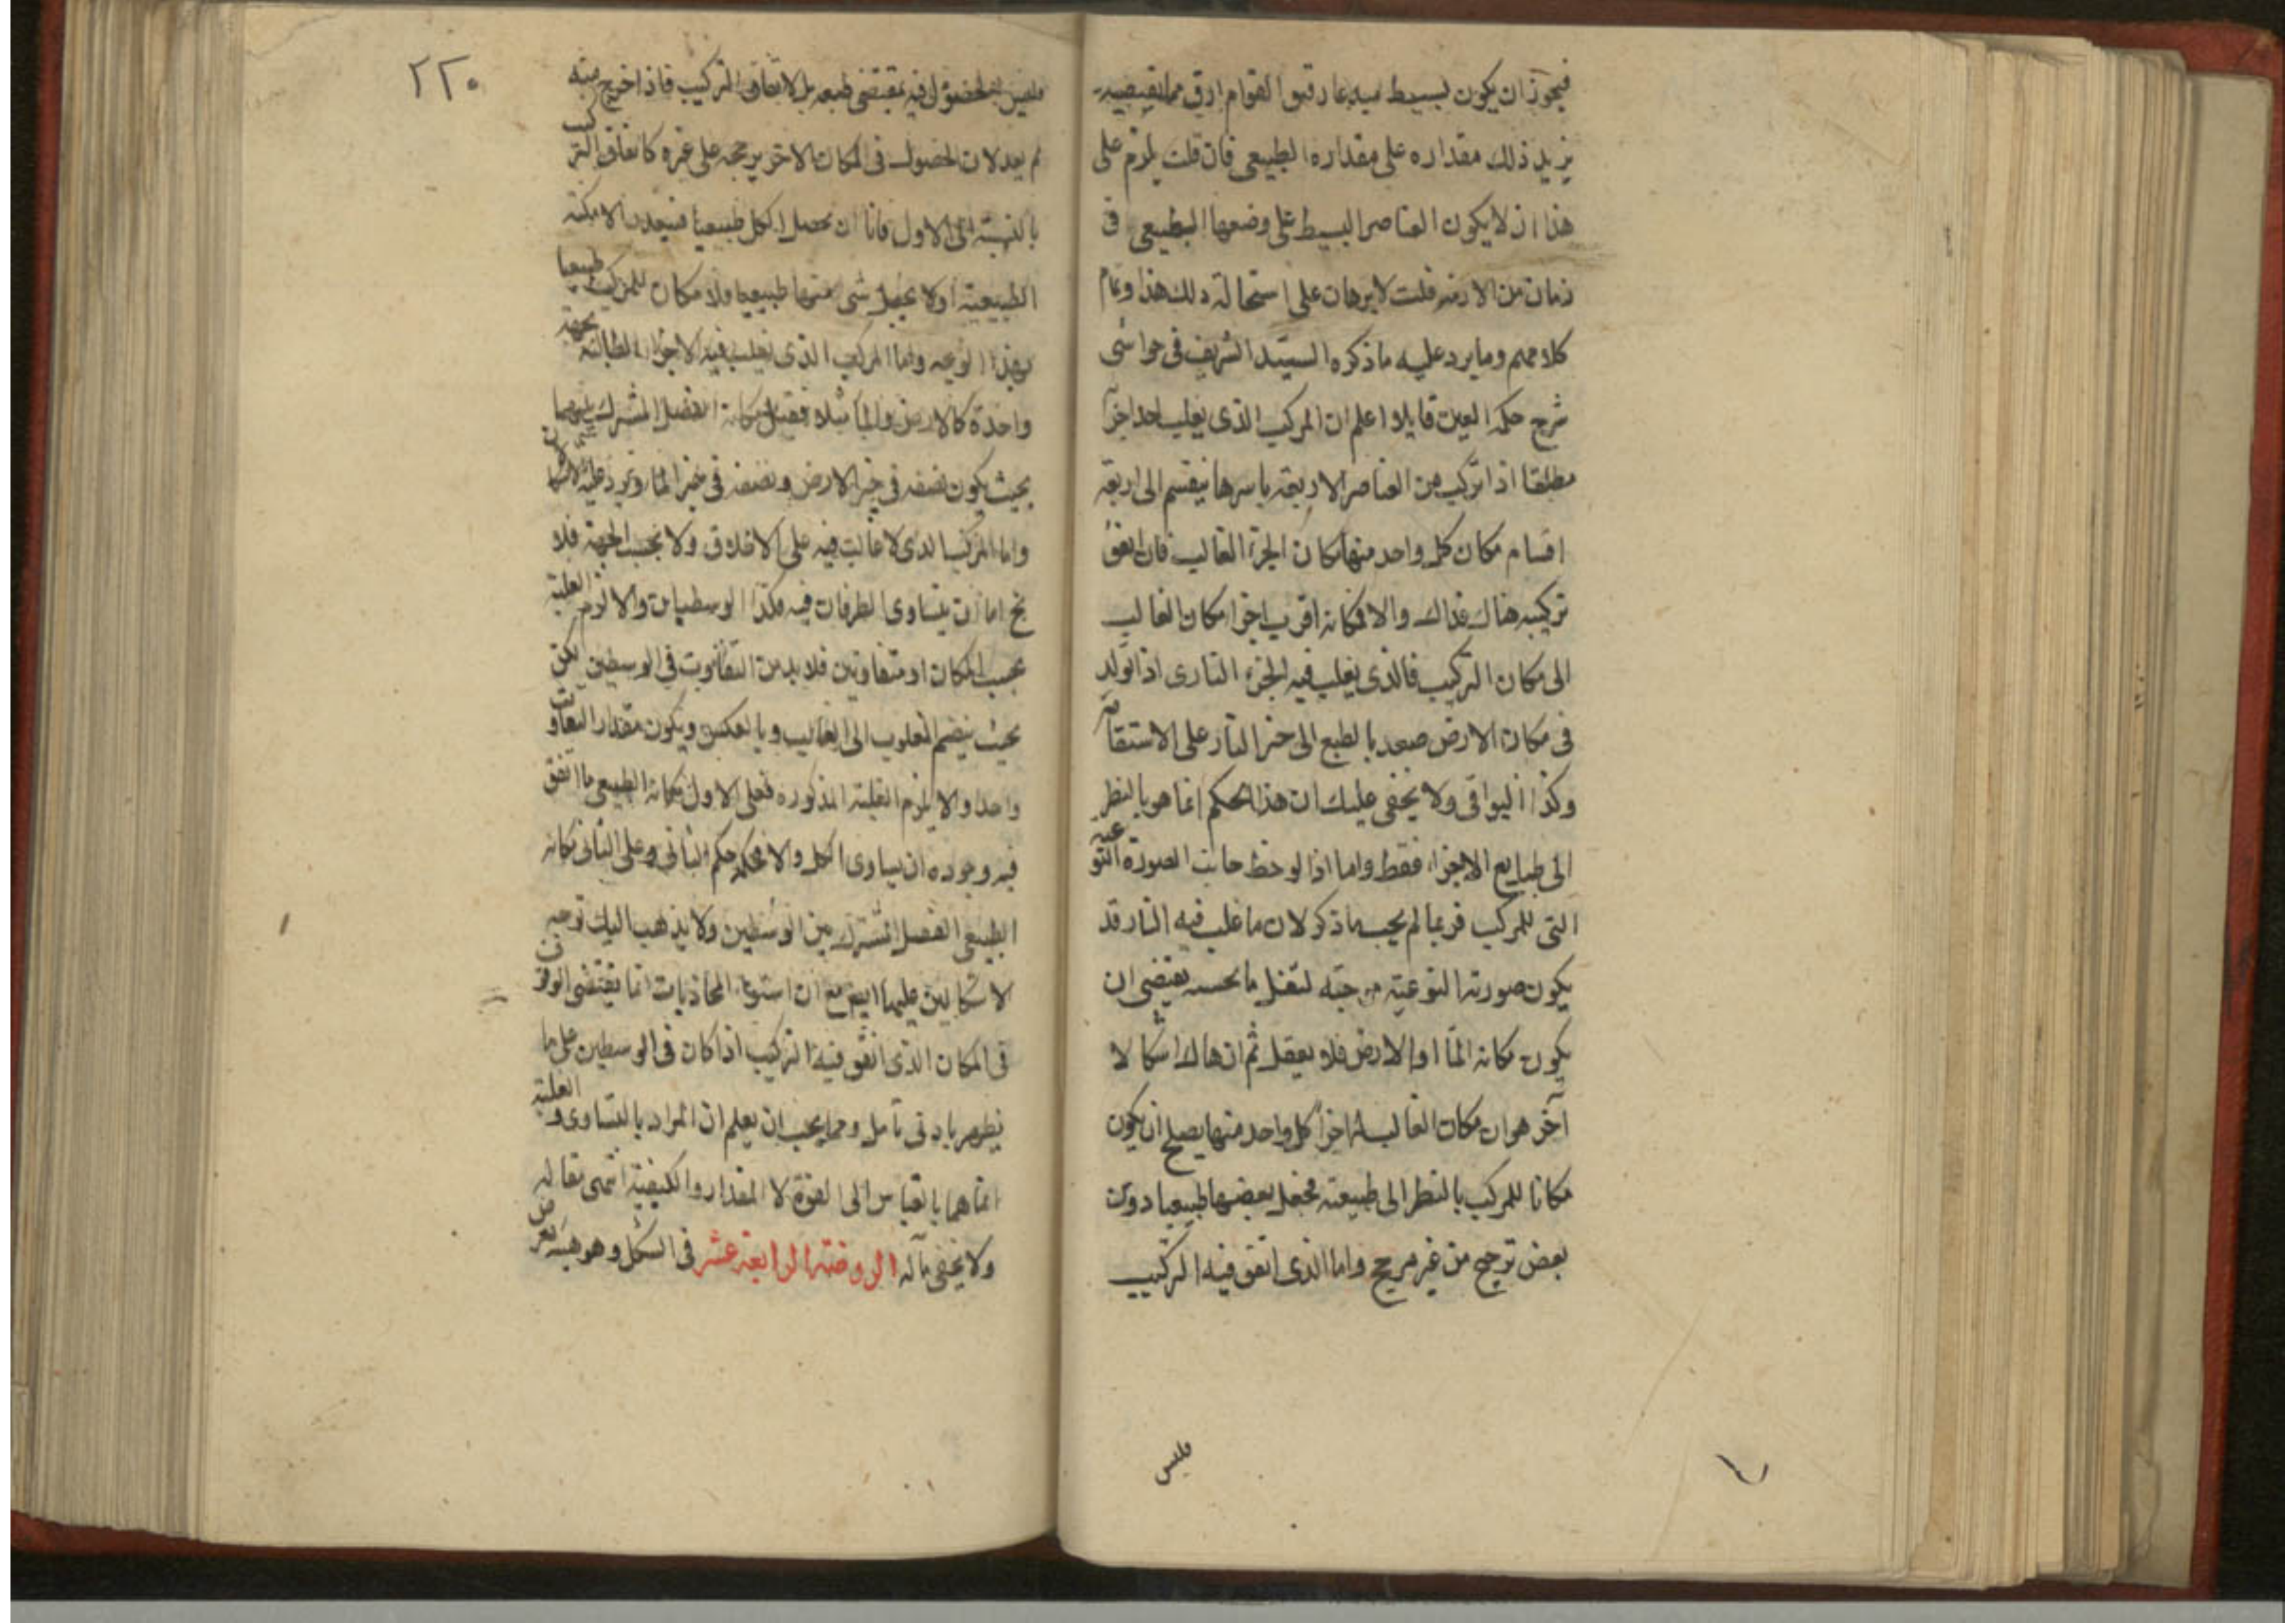 فيجوز ان يكون بسيط فيه عارقيق القوام ارق مما يقتضيه
يزيد ذلك مقداره على مقداره الطبيعى فان قلت يلزم على
هذا ان لا يكون العناصر البسيط على وضعها الطبيعى فى
زمان من الازمنه قلت لا برهان على استحالة ذلك هذا وتمام
كلامهم وما يرد عليه ما ذكره السيد الشريف فى حواشى
شرح حكمة العين قايلا اعلم ان المركب الذى يغلب احد اجزآئه
مطلقا اذا تركب من العناصر الاربعة باسرها ينقسم الى اربعة
اقسام مكان كل واحد منها مكان الجزء الغالب فان اتفق
تركيبه هناك فذاك والا فمكانه اقرب اجزا مكان الغالب
الى مكان التركيب فالذى يغلب فيه الجزء النارى اذا تولد
فى مكان الارض صعد بالطبع الى حيز النار على الاستقامة
وكذا البواقى ولا يخفى عليك ان هذا الحكم انما هو بالنظر
الى طبايع الاجزاء فقط واما اذا لوحظ جانب الصورة النوعية
التى للمركب فربما لم يجب ما ذكر لان ما غلب فيه النار قد
يكون صورته النوعية موجبه لثقل ما بحسبه يقتضى ان
يكون مكانه المآ او الارض فلا يعقل ثم ان هاك اشكالا
آخر هو ان مكان الغالب له اجزآ كل واحد منها يصلح ان يكون
مكانا للمركب بالنظر الى طبيعته فجعل بعضها طبيعيا دون
بعض ترجيح من غير مرجح واما الذى اتفق فيه التركيب
فليس
٢٢٠
فليس الحصول فيه بمقتضى طبعه بل لاتفاق التركيب فاذا خرج منه
لم يعد لان الحصول فى المكان الاخر يرجحه على غيره كاتفاق التركيب
بالنسبة الى الاول فاما ان يحصل الكل طبيعيا فيتعدد الامكنة
الطبيعية او لا يجعل شى منها طبيعيا ولا مكان للمركب طبيعيا
بهذا الوجه واما المركب الذى يغلب فيه الاجزآ الطالبة بجهة
واحدة كالارض والمآ مثلا فقيل مكانه الفصل المشترك بينهما
بحيث يكون نصفه فى حيز الارض ونصفه فى حيز المآ ويرد عليه الاشكالان
واما المركب الذى لا غالب فيه على الاطلاق ولا بحسب الجهة فلا
يخ اما ان يتساوى الطرفان فيه فكذا الوسطيان والا لزم الغلبة
بحسب المكان او متفاوتين فلا بد من التفاوت فى الوسطين لكن
بحيث ينضم المغلوب الى الغالب وبالعكس ويكون مقدار التفاوت
واحدا والا يلزم الغلبة المذكوره فعلى الاول مكانه الطبيعى ما اتفق
فيه وجوده ان يساوى الكل والا فحكمه حكم الثانى وعلى الثانى مكانه
الطبيعى الفصل المشترك بين الوسطين ولا يذهب اليك توجه
الاشكالين عليها ايضا مع ان استواء المحاذيات انما يقتضى الوقوف
فى المكان الذى اتفق فيه التركيب اذا كان فى الوسطين على ما
يظهر بادنى تامل ومما يجب ان يعلم ان المراد بالتساوى والغلبة
انما هما بالقياس الى القوة لا المقدار والكيفية انتهى مقاله
ولا يخفى مآله الروضة الرابعة عشر فى الشكل وهو هيئة تعرض